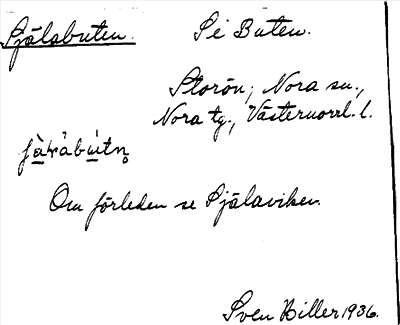 Själabuten. Se Buten.
Storön, Nora sn.,
Nora tg., Västernorrl. l.
Om förleden se Själaviken.
Sven Hiller 1936.